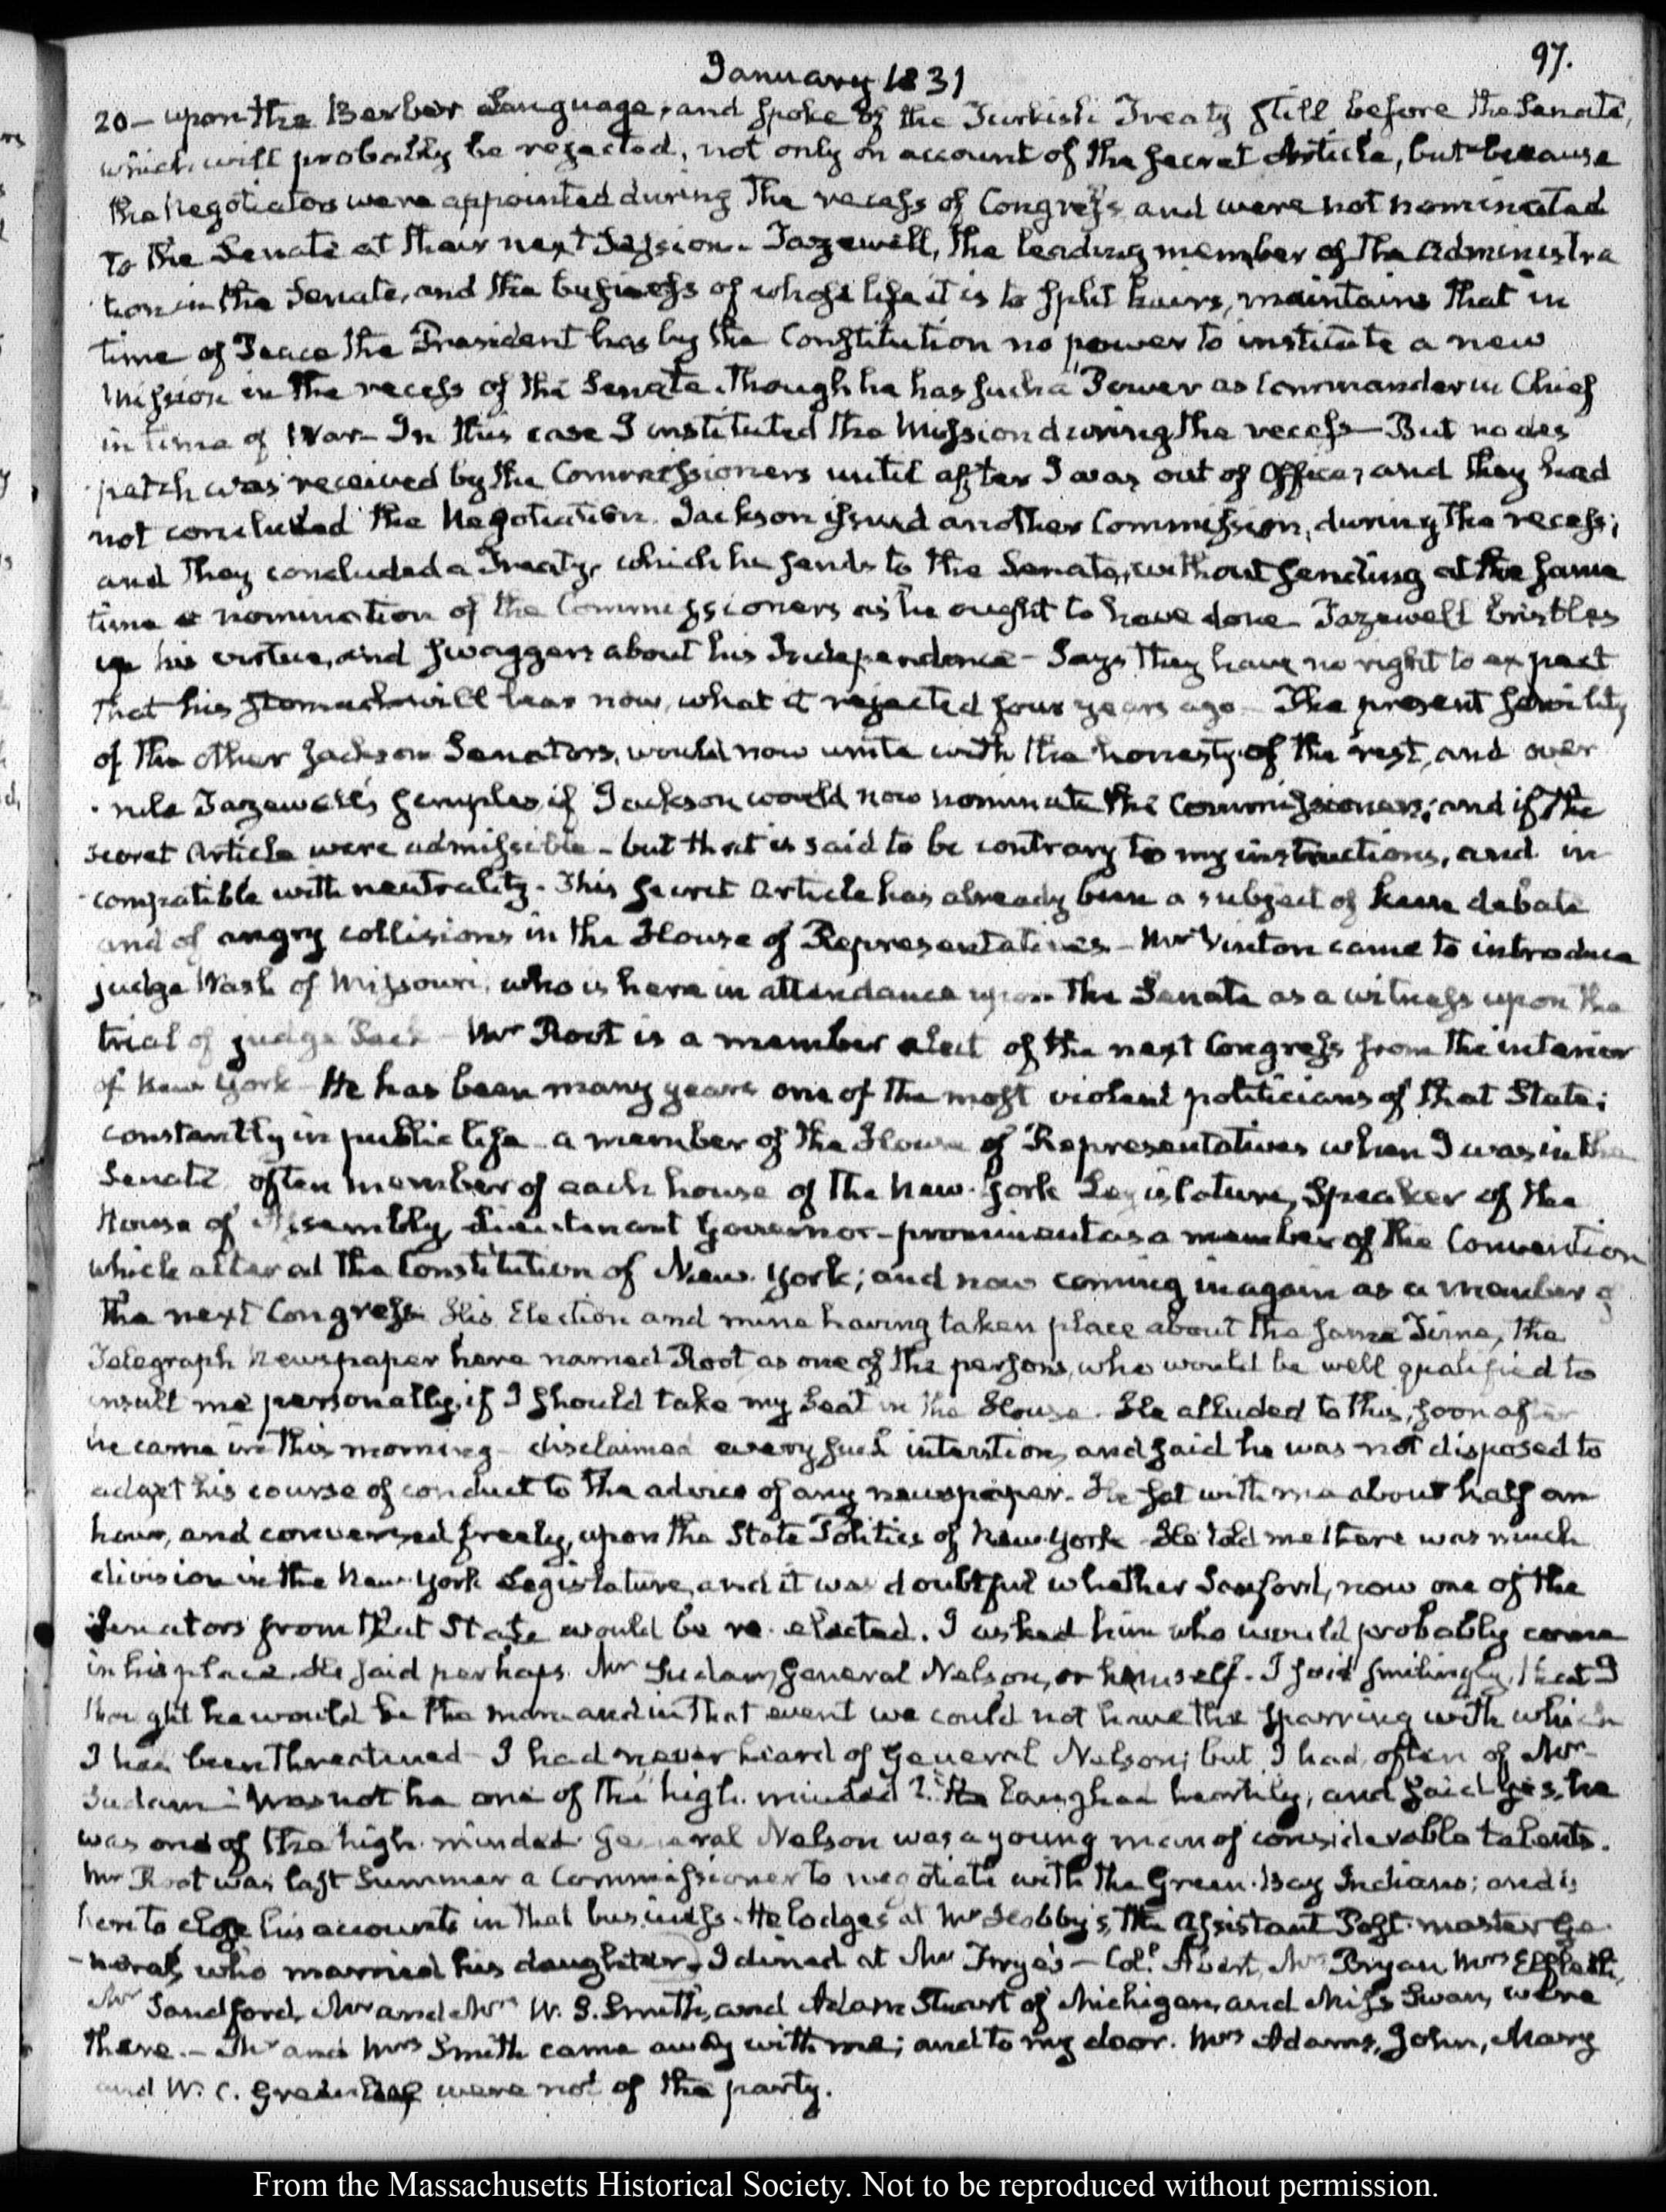 97.
January 1831
20— upon the Berber Language, and spoke of the Turkish Treaty still before the Senate,
which will probably be rejected, not only on account of the secret Article, but because
the Negotiators were appointed during the recess of Congress and were not nominated
to the Senate at their next Session. Tazewell, the leading member of the Administra
tion in the Senate, and the business of whose life it is to split hairs, maintains that in
time of Peace the President has by the Constitution no power to institute a new
Mission in the recess of the Senate. Though he has such a Power as Commander in Chief
in time of War— In this case I instituted the Mission during the recess— But no des
patch was received by the Commissioners until after I was out of Office; and they had
not concluded the Negotiation. Jackson issued another Commission, during the recess;
and they concluded a Treaty, which he sends to the Senate, without sending at the same
time a nomination of the Commissioners as he ought to have done— Tazewell bristles
up his virtue, and swaggers about his Independence— Says they have no right to expect
that his stomach will bear now, what it rejected four years ago— The present servility
of the other Jackson Senators, would now unite with the honesty of the rest, and over
rule Tazewell's scruples, if Jackson would now nominate the Commissioners; and if the
secret Article were admissible— but that is said to be contrary to my instructions, and in
compatible with neutrality. This secret Article has already been a subject of keen debate
and of angry collisions in the House of Representatives— Mr Vinton came to introduce
judge Wash of Missouri, who is here in attendance upon the Senate as a witness upon the
trial of judge Peck— Mr Root is a member elect of the next Congress from the interior
of New York— He has been many years one of the most violent politicians of that State;
constantly in public life— a member of the House of Representatives when I was in the
Senate, often member of each house of the New-York Legislature, Speaker of the
House of Assembly, Lieutenant Governor— prominent as a member of the Convention
which altered the Constitution of New-York; and now coming in again as a member of
the next Congress. His Election and mine having taken place about the same Time, the
Telegraph Newspaper here named Root as one of the persons, who would be well qualified to
insult me personally, if I should take my Seat in the House. He alluded to this, soon after
he came in this morning— disclaimed every such intention, and said he was not disposed to
adapt his course of conduct to the advice of any newspaper. He sat with me about half an
hour, and conversed freely, upon the State Politics of New-York— He told me there was much
division in the New-York Legislature, and it was doubtful whether Sanford, now one of the
Senators from that State would be re-elected. I asked him who would probably come
in his place. He said perhaps Mr Sudam, General Nelson, or himself. I said smilingly, that I
thought he would be the man and in that event we could not have the sparring with which
I had been threatened— I had never heard of General Nelson; but I had often of Mr
Sudam— Was not he one of the high-minded? He laughed heartily, and said yes, he
was one of the high-minded. General Nelson was a young man of considerable talents.
Mr Root was last Summer a Commissioner to negotiate with the Green-Bay Indians; and is
here to close his accounts in that business. He lodges at Mr Hobby's, the Assistant Post-master Ge-
-neral, who married his daughter. I dined at Mr Frye's— Coll. Abert, Mr Bryan Mrs
Mr Sandford, Mr and Mrs W. S. Smith, and Adam Stuart of Michigan, and Miss Swan, were
there.— Mr and Mrs Smith came away with me; and to my door. Mrs Adams, John, Mary
and W. C. Greenleaf were not of the party.
From the Massachusetts Historical Society. Not to be reproduced without permission.